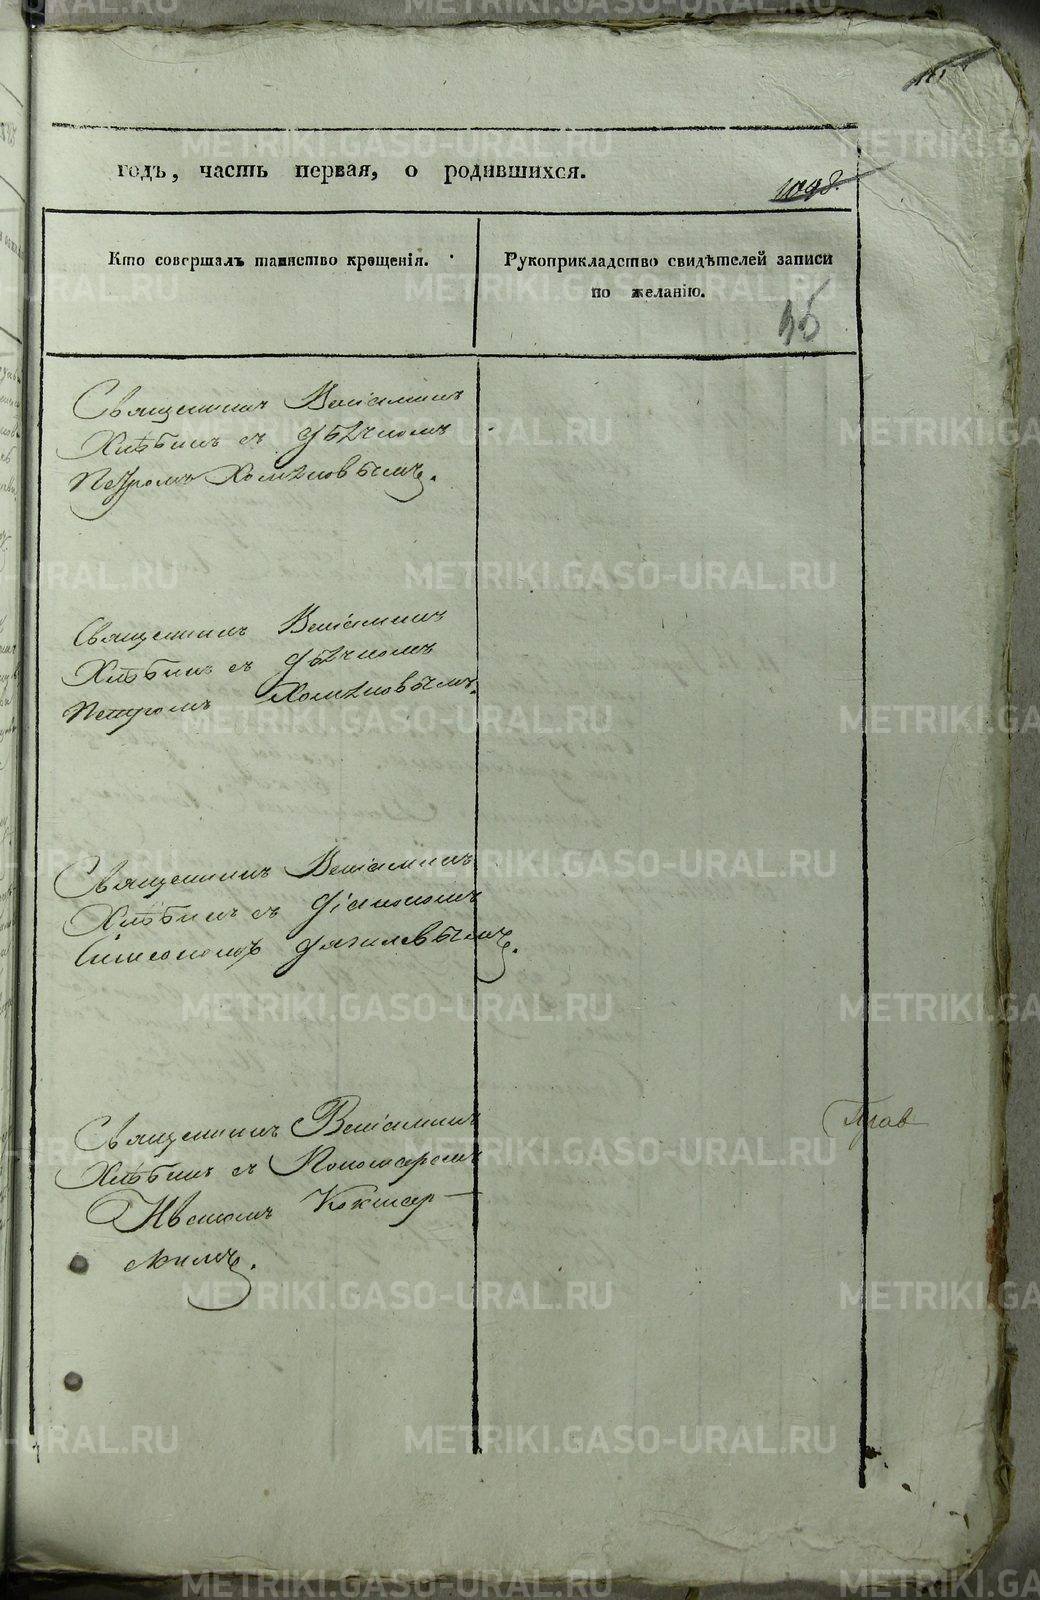 годъ, часть первая, о родившихся.
1098.
Кто совершалъ таинство крещенія.
Рукоприкладство свидѣтелей записи
по желанію.
Священникъ Веніаминъ
Хлѣбинъ съ дьячкомъ
Петромъ Хомяковымъ.
Священникъ Веніаминъ
Хлѣбинъ съ дьячкомъ
Петромъ Хомяковымъ.
Священникъ Веніаминъ
Хлѣбинъ съ діакономъ
Симеономъ Дягилевымъ.
Священникъ Веніаминъ
Хлѣбинъ съ Пономаремъ
Иваномъ Кокшар-
скимъ.
METRIKI.GASO-URAL.RU